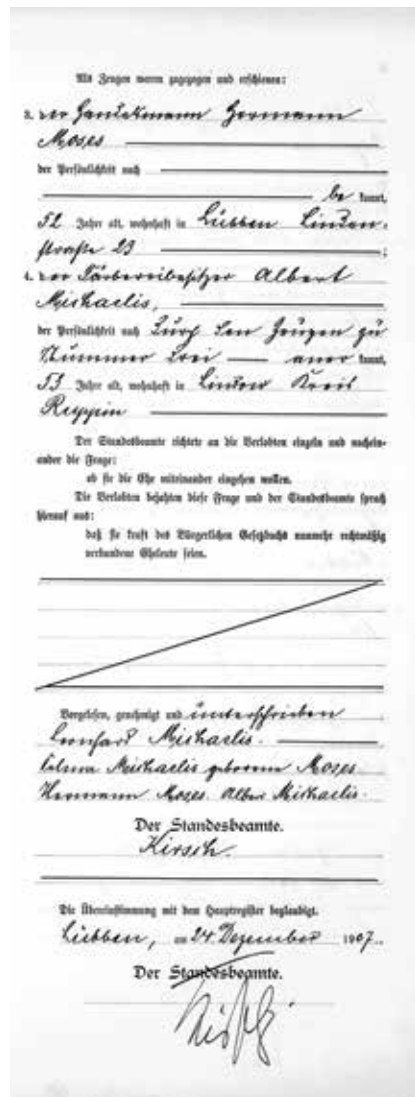 Als Zeugen waren zugezogen und erschienen:
3. der Handelsmann Hermann
Moses
der Persönlichkeit nach
be kannt,
52 Jahre alt, wohnhaft in Lübben Linden-
straße 23 ;
4. der Färbereibesitzer Albert
Michaelis,
der Persönlichkeit nach durch den Zeugen zu
Nummer drei — aner kannt,
53 Jahre alt, wohnhaft in Lindow Kreis
Ruppin
Der Standesbeamte richtete an die Verlobten einzeln und nachein-
ander die Frage:
ob sie die Ehe miteinander eingehen wollen.
Die Verlobten bejahten diese Frage und der Standesbeamte sprach
hierauf aus:
daß sie kraft des Bürgerlichen Gesetzbuchs nunmehr rechtmäßig
verbundene Eheleute seien.
Vorgelesen, genehmigt und unterschrieben
Leonhard Michaelis.
Michaelis geborene Moses
Hermann Moses. Albert Michaelis.
Der Standesbeamte.
Kirsch.
Die Übereinstimmung mit dem Hauptregister beglaubigt.
Lübben, am 24. Dezember 1907.
Der Standesbeamte.